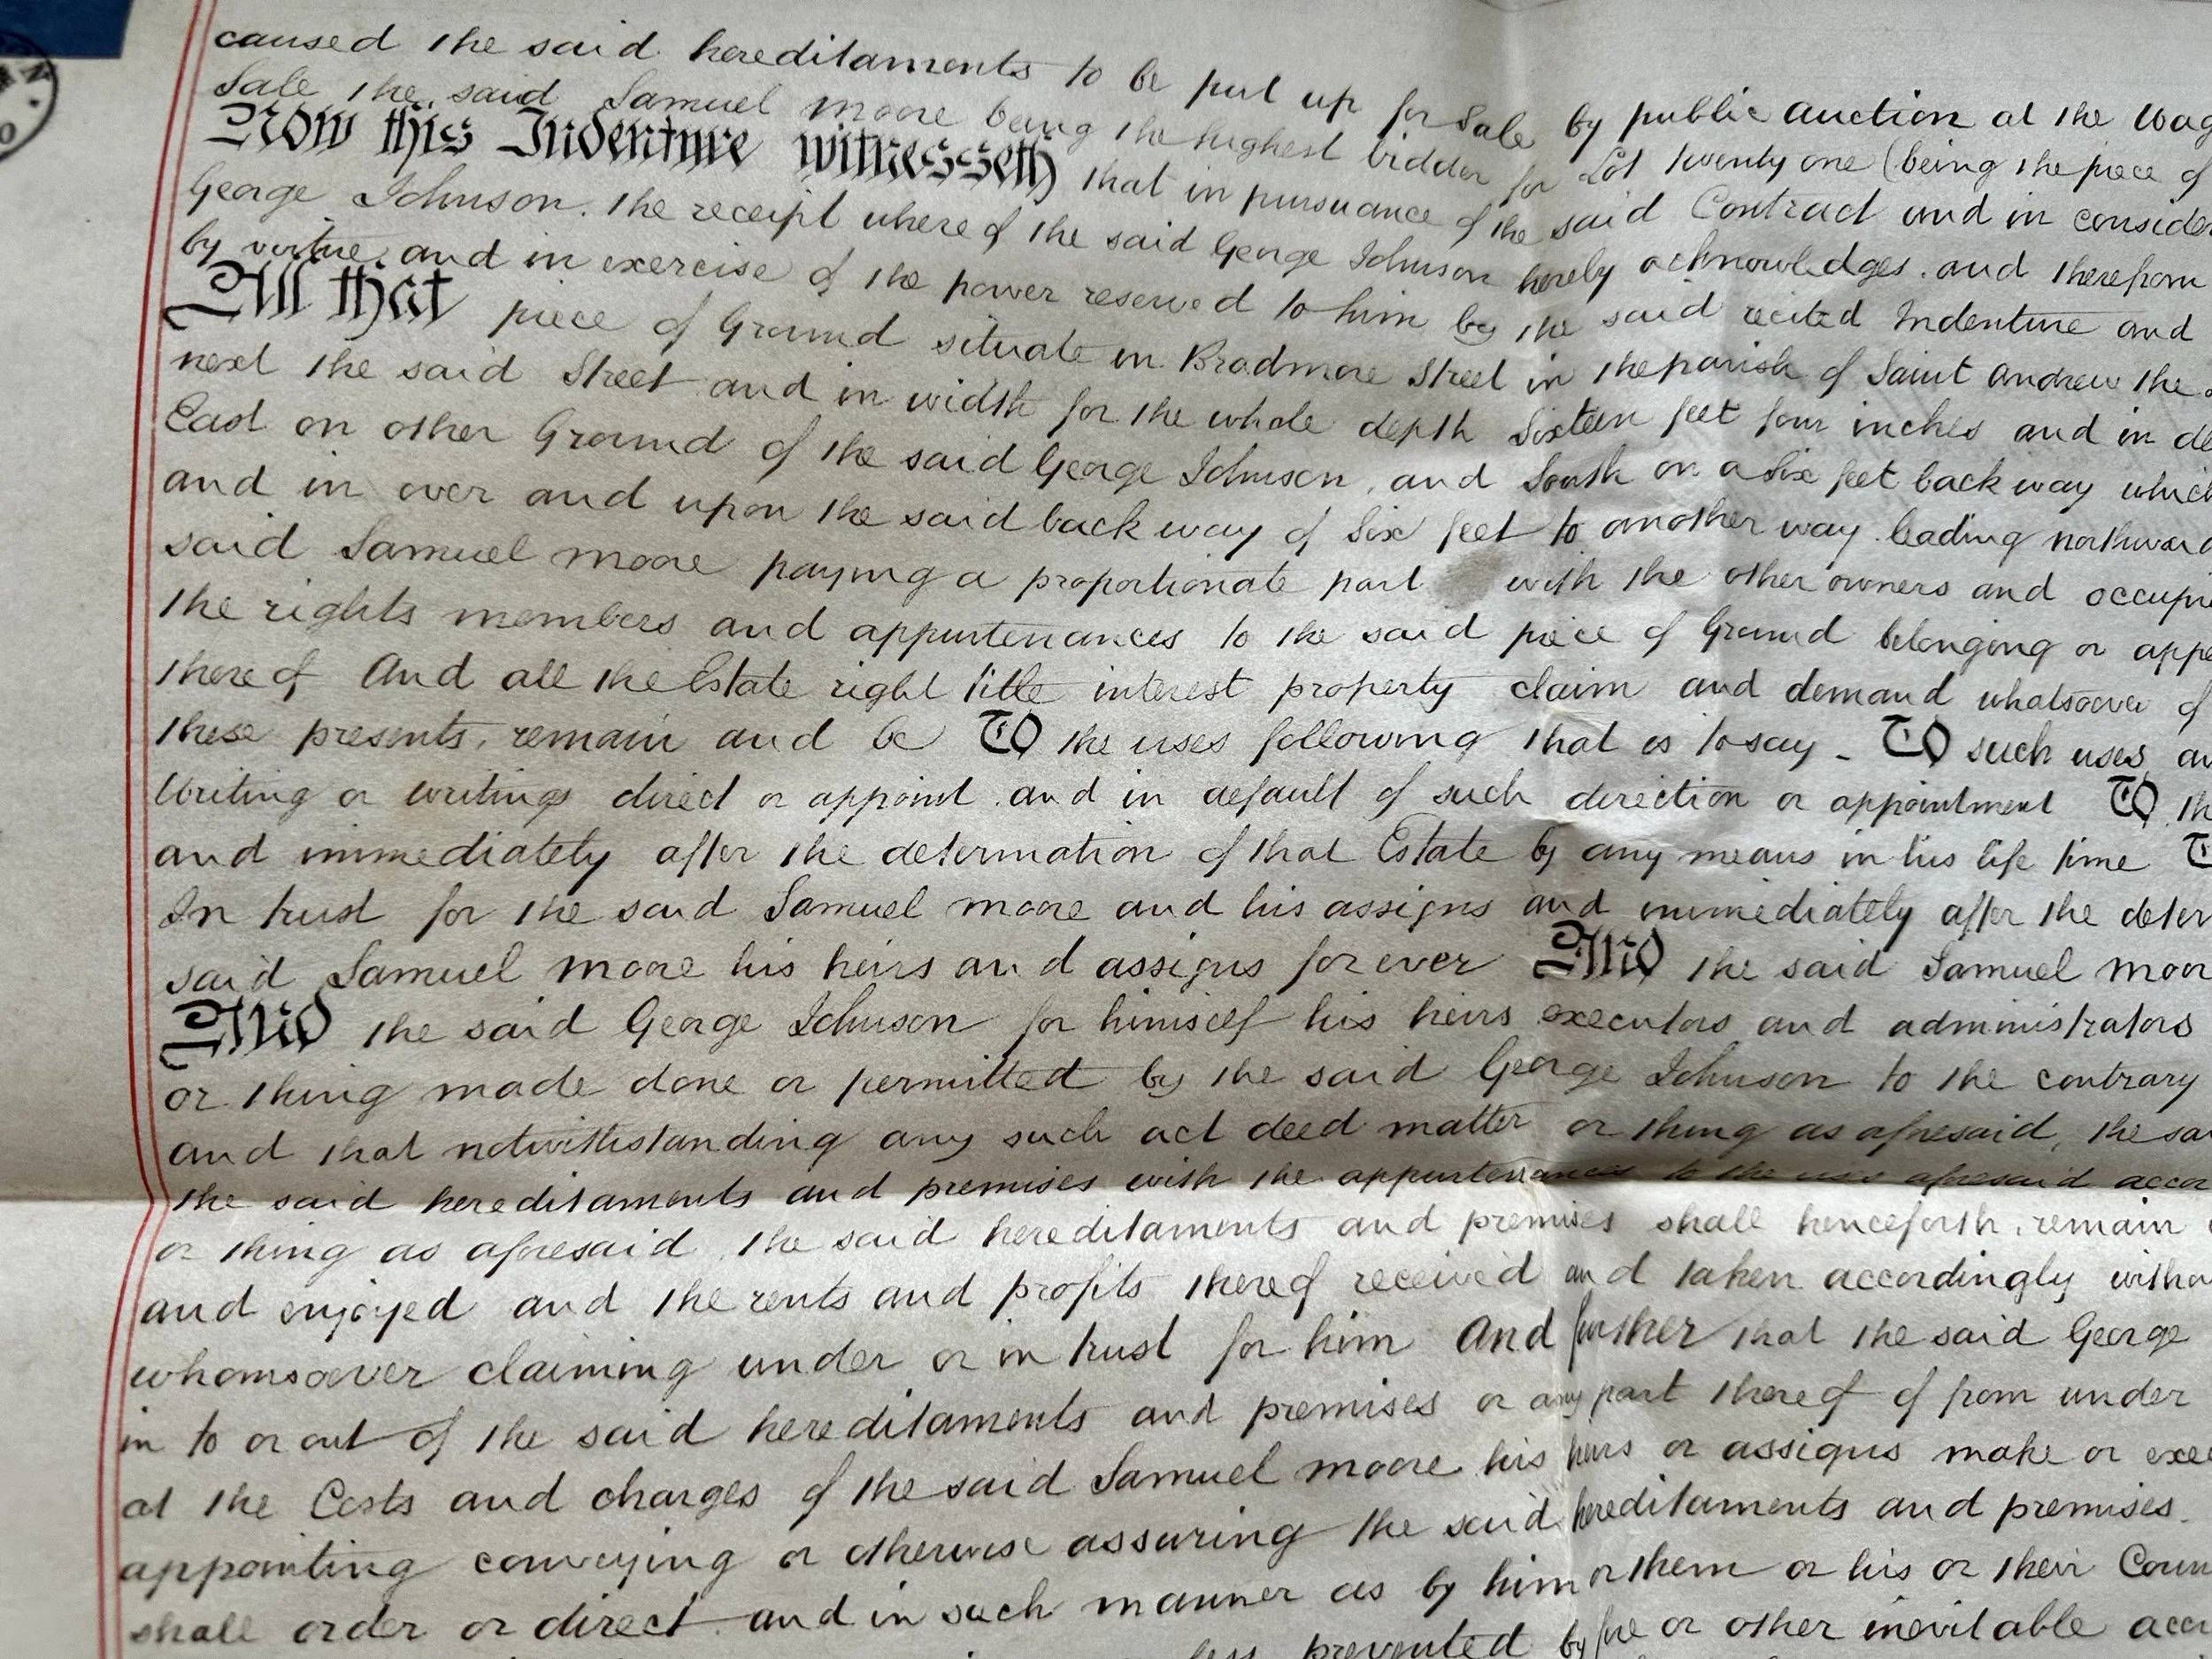 caused the said hereditaments to be put up for Sale by public auction at the Wag
Sale the said Samuel Moore being the highest bidder for Lot twenty one (being the piece of
Now this Indenture witnesseth that in pursuance of the said Contract and in consider
George Johnson. the receipt where of the said George Johnson hereby acknowledges. and therefrom
by virtue and in exercise of the power reserved to him by the said recited Indenture and
All that piece of Ground situate in Bradmore Street in the parish of Saint Andrew the
next the said Street and in width for the whole depth Sixteen feet four inches and in de
East on other Ground of the said George Johnson, and South on a Six feet back way which
and in over and upon the said back way of Six feet to another way leading northward
said Samuel Moore paying a proportionate part with the other owners and occupie
the rights members and appurtenances to the said piece of Ground belonging or appe
there of And all the Estate right title interest property claim and demand whatsoever of
these presents, remain and be To the uses following that is to say - To such uses, an
Writing or writings direct or appoint. and in default of such direction or appointment To th
and immediately after the determation of that Estate by any means in his life time T
In trust for the said Samuel Moore and his assigns and immediately after the deter
said Samuel Moore his heirs and assigns for ever And the said Samuel Moor
And the said George Johnson for himself his heirs executors and administrators
or thing made done or permitted by the said George Johnson to the contrary
and that notwithstanding any such act deed matter or thing as aforesaid, the sa
the said hereditaments and premises with the appurtenances to the uses aforesaid accor
or thing as aforesaid, the said hereditaments and premises shall henceforth, remain
and enjoyed and the rents and profits thereof received and taken accordingly witho
whomsoever claiming under or in trust for him And further that the said George
in to or out of the said hereditaments and premises or any part thereof of from under
at the Costs and charges of the said Samuel Moore his heirs or assigns make or exe
appointing conveying or otherwise assuring the said hereditaments and premises.
shall order or direct and in such manner as by him or them or his or their Coun
prevented by fire or other inevitable acci